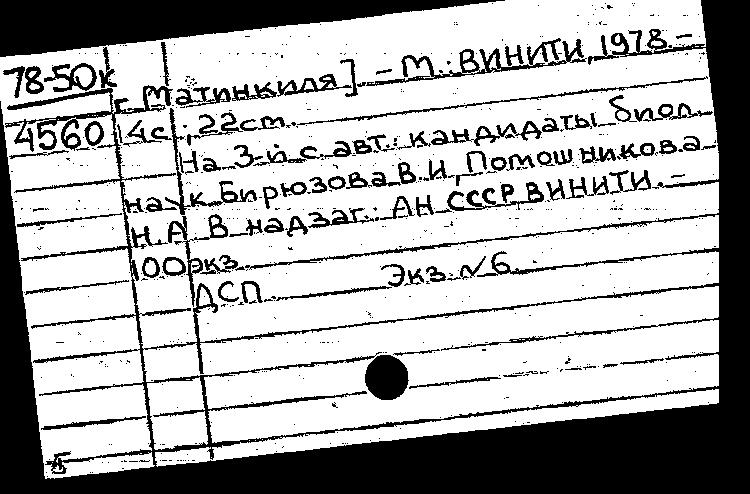 78-50к
г. Матинкиля] – М.: ВИНИТИ, 1978. –
4560 14с.; 22см.
На 3-й с. авт.: кандидаты биол.
наук Бирюзова В.И., Помошникова
Н.А. В надзаг.: АН СССР, ВИНИТИ. –
100 экз.
ДСП Экз. №6